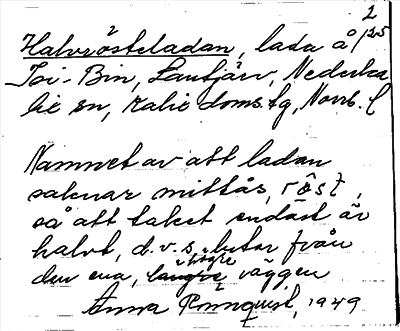 2
Halvrösteladan, lada å 1/35
Isi-Bin, Lantjärv, Nederka
lix sn, Kalix doms.tg, Norrb. l
Namnet av att ladan
saknar mittås, röst,
så att taket endast är
halvt, d.v.s. lutar från
högre
den ena, längre väggen
Anna Rönnqvist, 1949